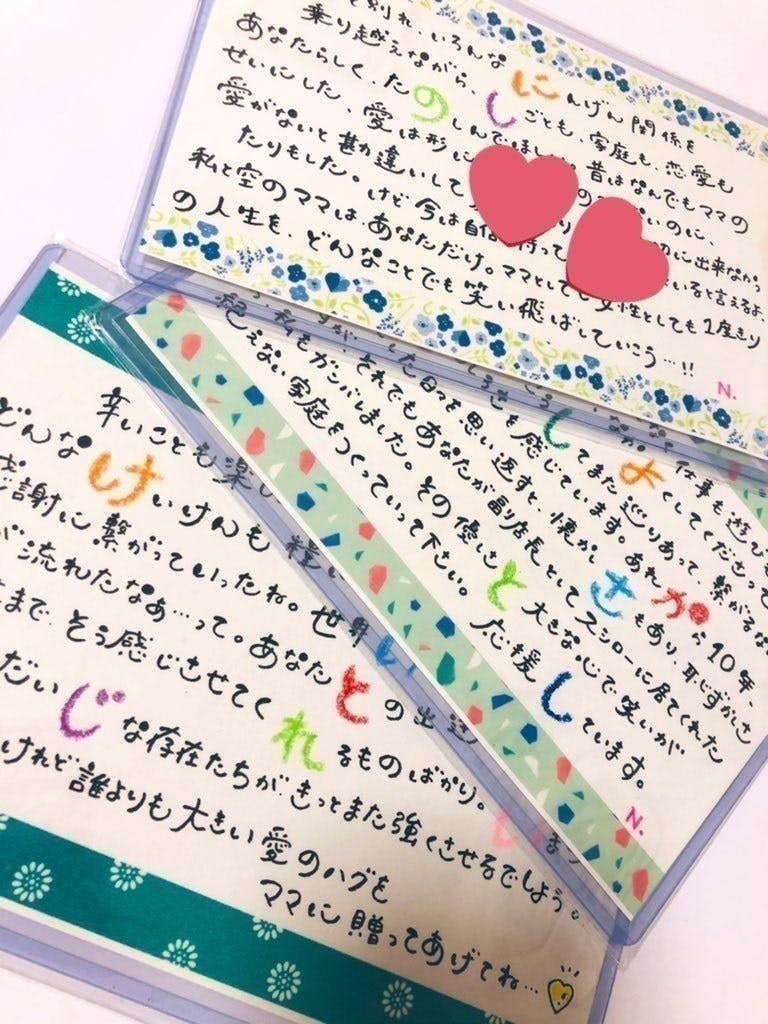 と別れ、いろんな
乗り越えながら、にんげん関係を
あなたらしく、たのしごとも、家庭も、恋愛も
せいにした、愛は形にしんでほし 昔はなんでもママの
愛がないと勘違いして のに、
たりもした。けど今は自信 持って 切に出来なかっ
私と空のママはあなただけ。ママとしても女性としても1度きり
の人生を、どんなことでも笑い飛ばしていこう…!!
いると言えるよ、
N.
仕事も遊び
してまた巡りあって、繋がる
よくしてくださって
た日々を思い返すと、懐かしさから10年、
を感じています。あれ もあり、恥じずかしさ
私もガンバしました。それでもあなたが副店長としてスシローに居てくれた
絶えない家庭をつくっていって下さい。その優しさと大きな心で笑いが
応援しています。
N.
辛いことも楽し
どんなけいけんも
謝に繋がっていったね。世界
流れたなぁ…って。あなたとの出逢
まで、そう感じさせてくれるものばかり。
だいじな存在たちが、きっとまた強くさせるでしょう。
けれど誰よりも大きい愛のハグを
ママに贈ってあげてね…